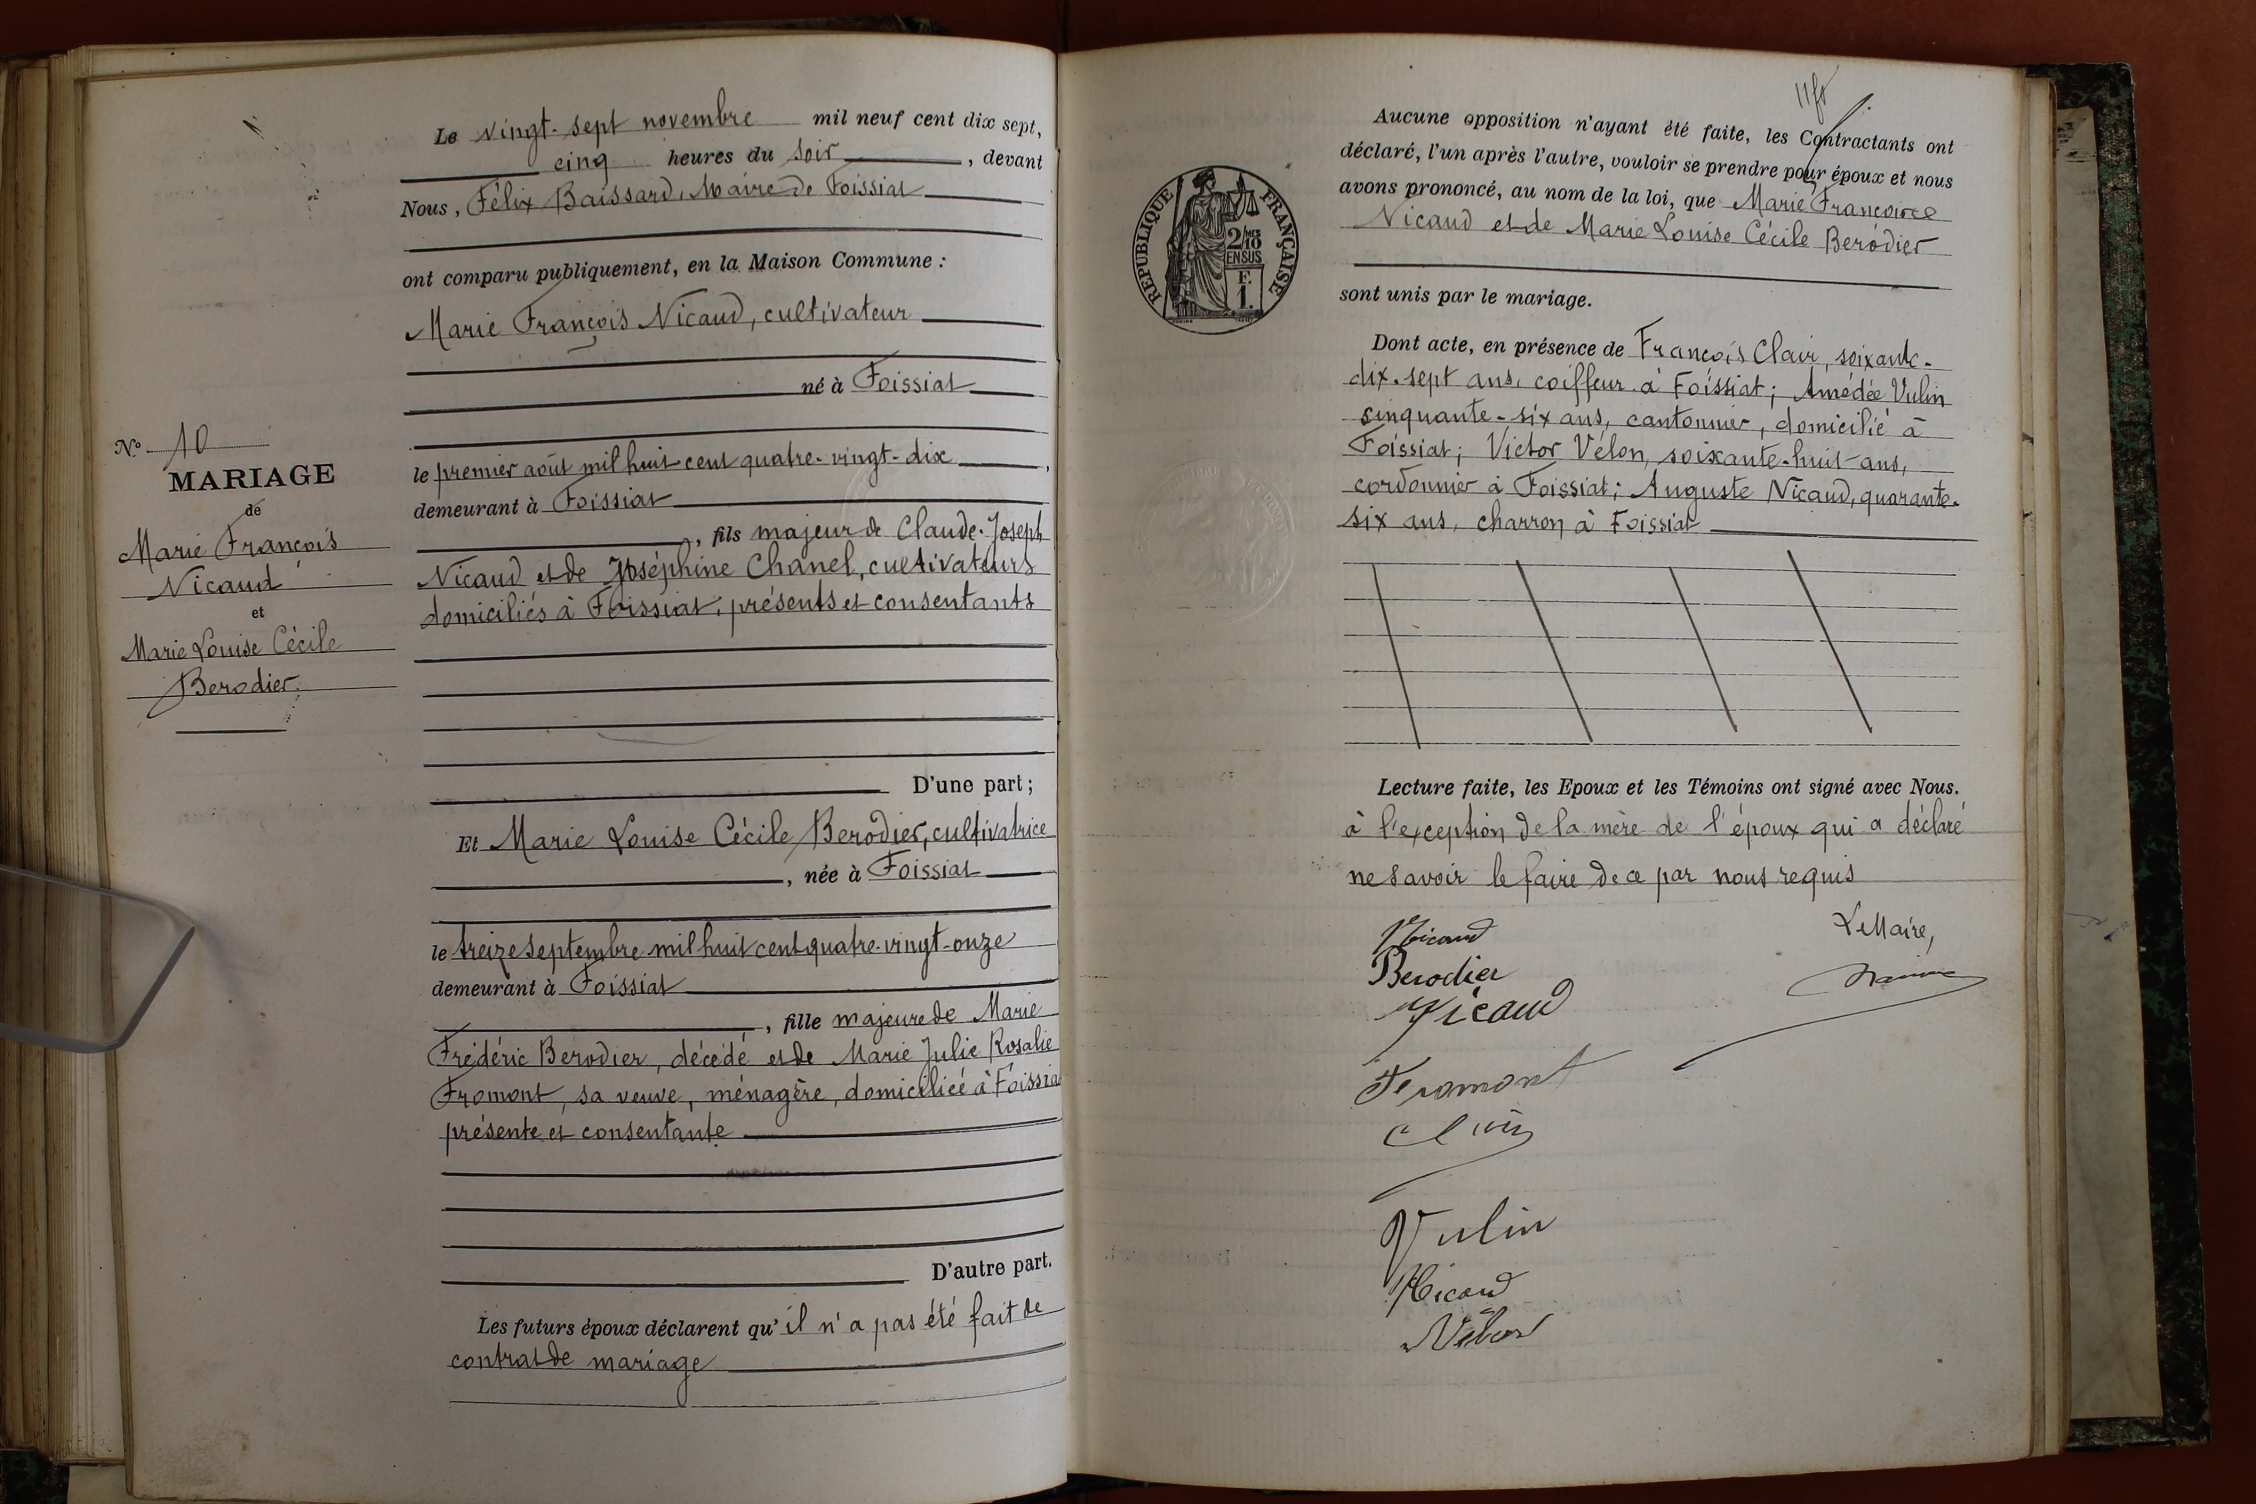 Le vingt-sept novembre mil neuf cent dix sept,
cinq heures du soir, devant
Nous, Félix Baissard, Maire de Foissiat
ont comparu publiquement, en la Maison Commune :
Marie François Nicaud, cultivateur
né à Foissiat
le premier août mil huit cent quatre-vingt-dix,
demeurant à Foissiat
, fils majeur de Claude-Joseph
Nicaud et de Joséphine Chanel, cultivateurs
domiciliés à Foissiat, présents et consentants
D'une part ;
Et Marie Louise Cécile Berodier, cultivatrice
, née à Foissiat
le treize septembre mil huit cent quatre-vingt-onze
demeurant à Foissiat
, fille majeure de Marie
Frédéric Berodier, décédé et de Marie Julie Rosalie
Fromont, sa veuve, ménagère, domiciliée à Foissia
présente et consentante
D'autre part.
Les futurs époux déclarent qu'il n'a pas été fait de
contrat de mariage
N.º 10
MARIAGE
de
Marie François
Nicaud
et
Marie Louise Cécile
Berodier
Aucune opposition n'ayant été faite, les Contractants ont
déclaré, l'un après l'autre, vouloir se prendre pour époux et nous
avons prononcé, au nom de la loi, que Marie Françoise
Nicaud et de Marie Louise Cécile Berodier
sont unis par le mariage.
RÉPUBLIQUE FRANÇAISE
2/10 MES
EN SUS
F.
1.
Dont acte, en présence de François Clair, soixante-
dix-sept ans, coiffeur à Foissiat ; Amédée Vulin
cinquante-six ans, cantonnier, domicilié à
Foissiat ; Victor Vélon, soixante-huit ans,
cordonnier à Foissiat ; Auguste Nicaud, quarante-
six ans, charron à Foissiat
Lecture faite, les Epoux et les Témoins ont signé avec Nous.
à l'exception de la mère de l'époux qui a déclaré
ne savoir le faire de ce par nous requis
Nicaud
Le Maire,
Berodier
Nicaud
Fromont
Clair
Vulin
Nicaud